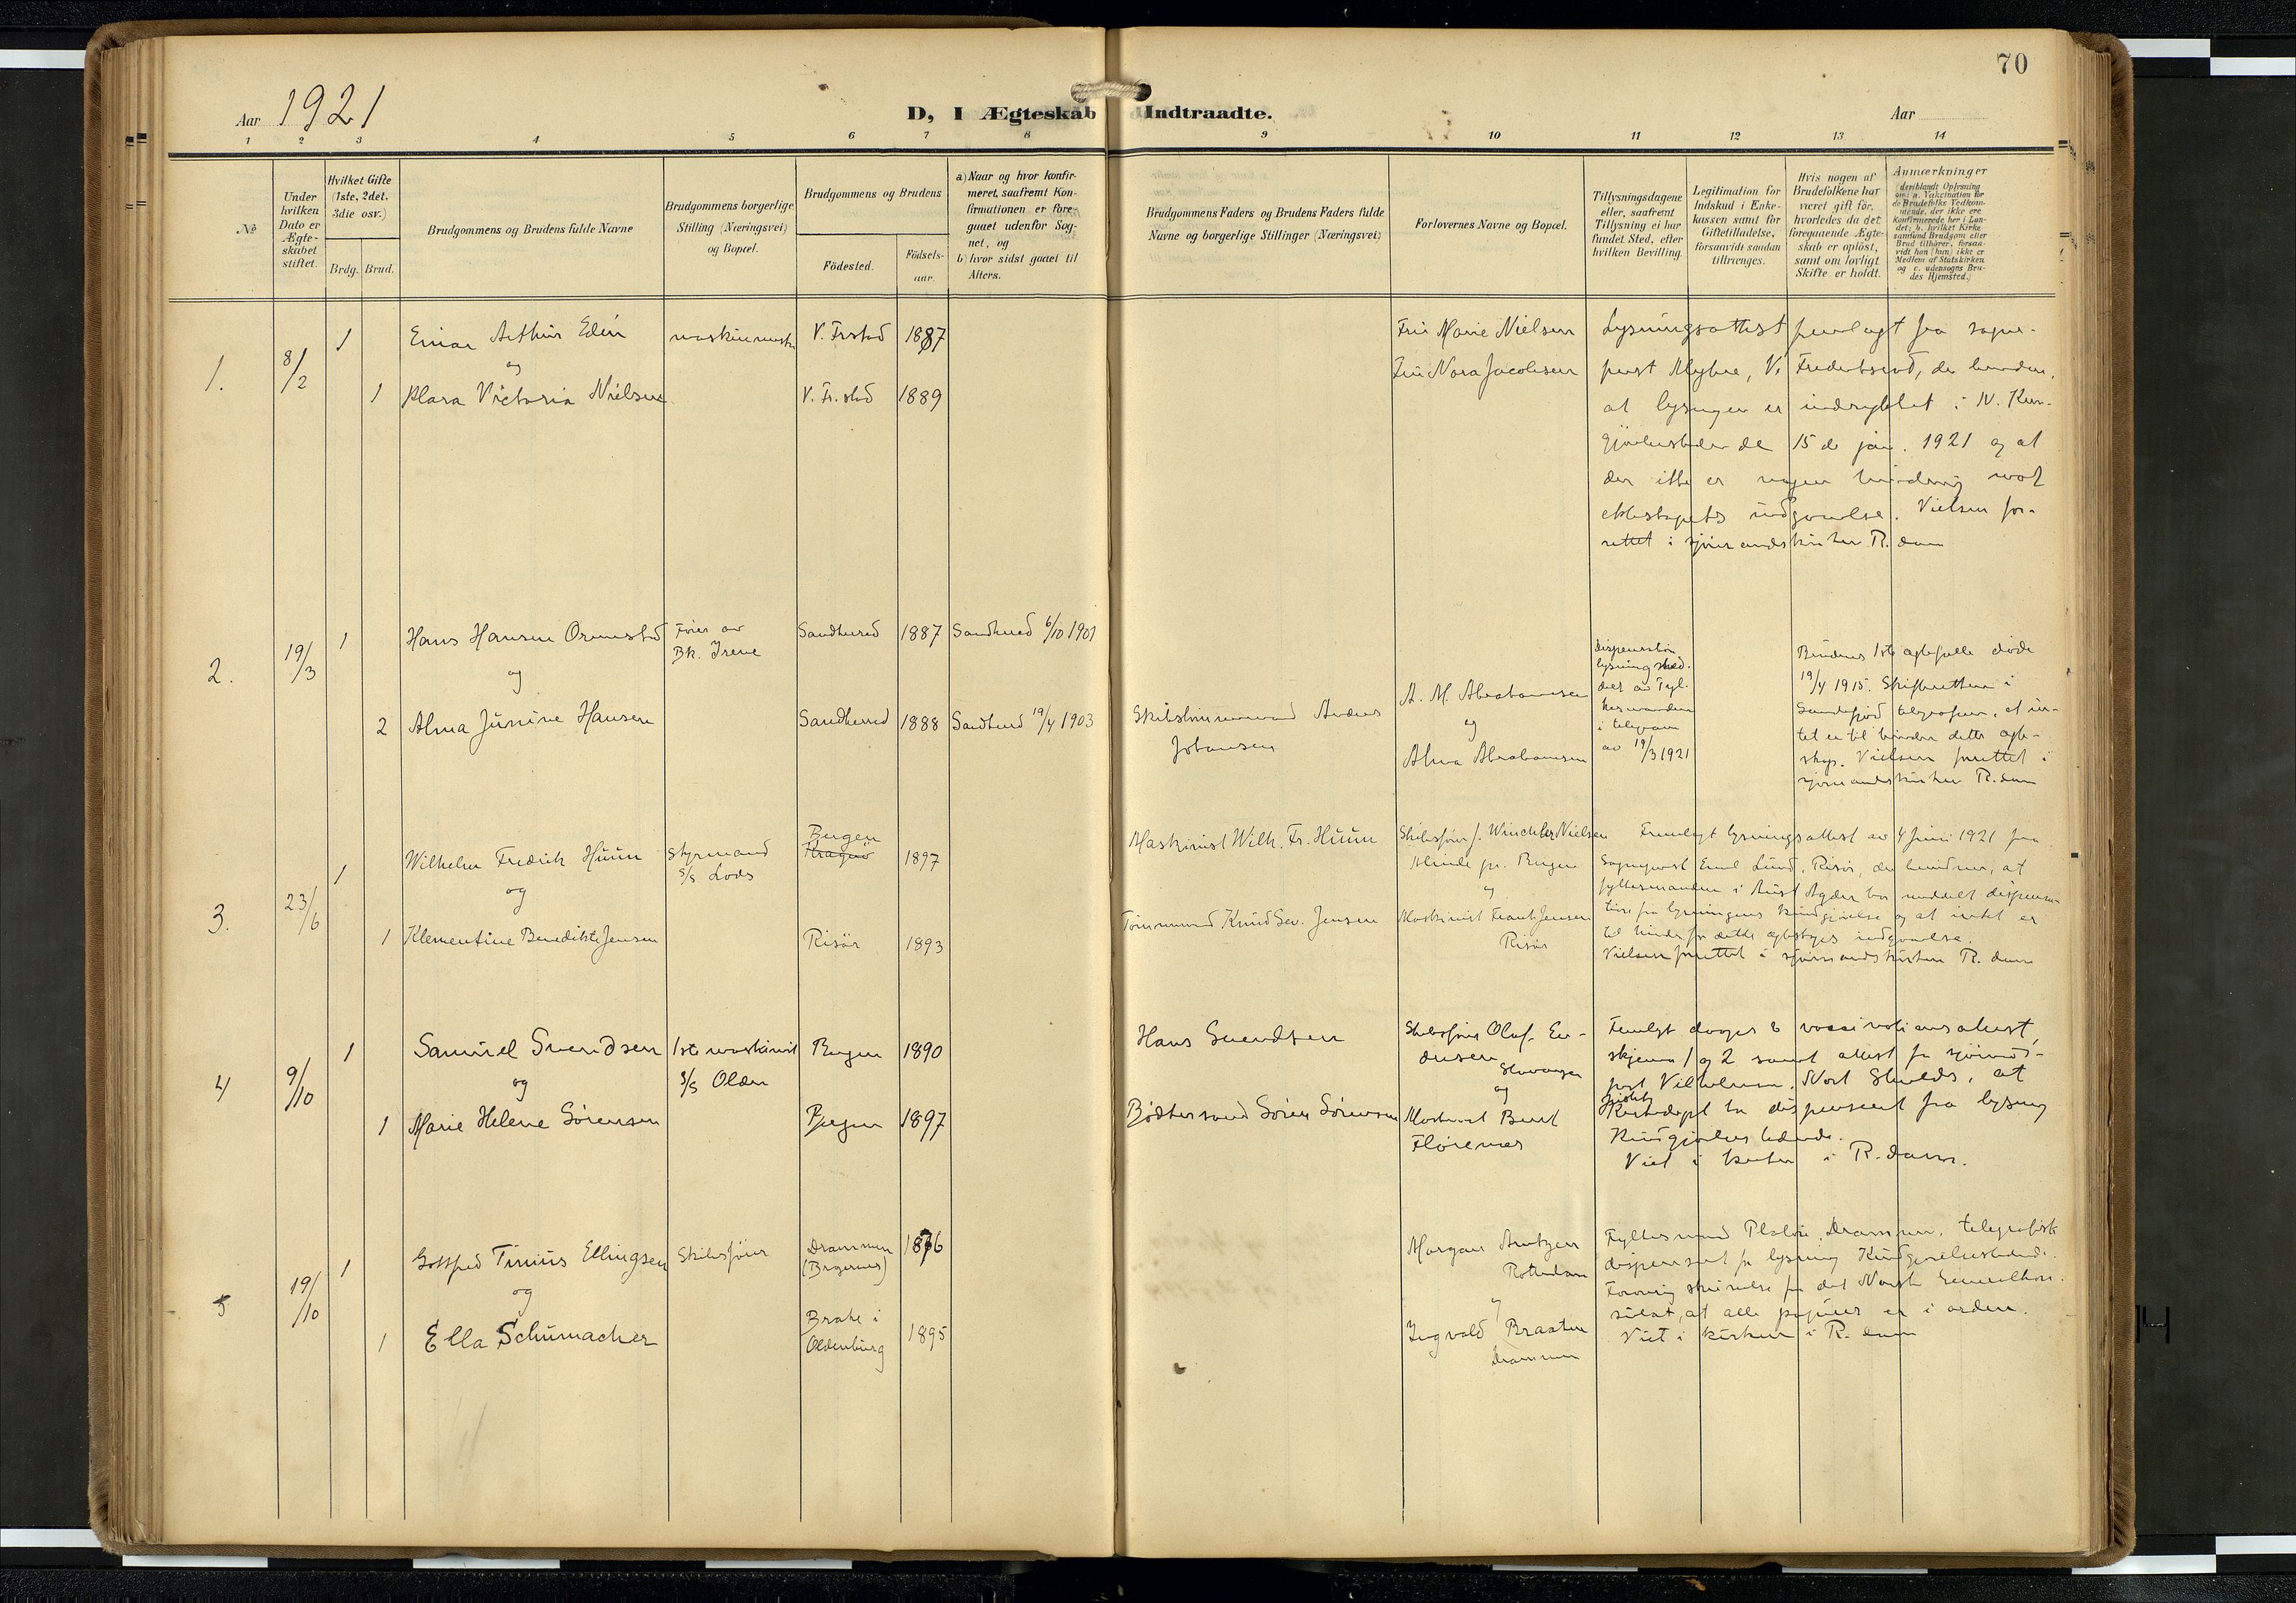 70
Aar 1921
D, I Ægteskab Indtraadte.
Aar
1 2 3 4 5 6 7 8 9 10 11 12 13 14
No
Under hvilken Dato er Ægteskabet stiftet.
Hvilket Gifte (1ste, 2det, 3die osv.)
Brdg. Brud.
Brudgommens og Brudens fulde Navne
Brudgommens borgerlige Stilling (Næringsvei) og Bopæl.
Brudgommens og Brudens
Födested.
Födsels-aar.
a) Naar og hvor konfir-
meret, saafremt Kon-
firmationen er fore-
gaaet udenfor Sog-
net, og
b) hvor sidst gaaet til
Alters.
Brudgommens Faders og Brudens Faders fulde
Navne og borgerlige Stillinger (Næringsvei)
Forlovernes Navne og Bopæl.
Tillysningsdagene
eller, saafremt
Tillysning ei har
fundet Sted, efter
hvilken Bevilling.
Legitimation for
Indskud i Enke-
kassen samt for
Giftetilladelse,
forsaavidt saadan
tiltrænges.
Hvis nogen af
Brudefolkene har
været gift för,
hvorledes da det
foregaaende Ægte-
skab er oplöst,
samt om lovligt
Skifte er holdt.
Anmærkninger
(deriblandt Oplysning
om: a. Vakcination for
de Brudefolks Vedkom-
mende, der ikke ere
konfirmerede her i Lan-
det; b. hvilket Kirke-
samfund Brudgom eller
Brud tilhører, forsaa-
vidt han (hun) ikke er
Medlem af Statskirken
og c. udensogns Bru-
des Hjemsted.)
1. 8/2 1 Einar Arthur Edin V. Frstad 1887
og
1 Klara Victoria Nielsen V. Fr.stad 1889
Fru Marie Nielsen
Fru Nora Jacobsen
Lysningsattest fremlagt fra sogne-
prest Myhre, V.
at lysningen er indrykket i N. Kun-
gjörelsestidende 15 de jan. 1921 og at
der ikke er nogen hindring mot
ekteskapets indgaaelse. Vielsen for-
rettet i sjömandskirken R.dam
2. 19/3 1 Hans Hansen Ormestad
og
2 Alma Junine Hansen
Bk. Irene
Sandherred 1887 Sandherred 6/10 1901
Sandherred 1888 Sandherred 19/4 1903
Skibstömmermand Anders
Johansen
A. M. Abrahamsen
og
Alma Abrahamsen
i telegram
av 19/3 1921
Brudens 1ste egtefelle döde
19/4 1915. Skifteretten i
Sandefjord telegraferer, at in-
tet er til hinder for dette egte-
skap. Vielsen forrettet i
sjömandskirken R.dam
3. 23/6 1 Wilhelm Fredrik Huun
og
1 Klementine Benedikte Jensen
Styrmand
s/s Lods
Bergen
Kragerö
1897
Risör 1893
Maskinist Wilh. Fr. Huun
Tömmermand Knud Sev. Jensen
Skibsförer J. Winchler Nielsen
pr. Bergen
og
Maskinist Frank Jensen
Risör
Fremlagt lysningsattest av 4 Juni 1921 fra
Sogneprest Emil Lund, Risör,
fylkesmanden i Aust Agder har meddelt dispensa-
tion fra lysningens kundgjörelse og at intet er
til hinder for dette egteskaps indgaaelse.
Vielsen forrettet i sjömandskirken R. dam
4 9/10 1 Samuel Svendsen
og
1 Marie Helene Sörensen
1ste maskinist
s/s Olden
Bergen 1890
Bergen 1897
Hans Svendsen
Bödtkersvend Sören Sörensen
Skibsförer Olaf
Stavanger
og
Maskinist Bernt
Flörenæs
Fremlagt daaps & vaccinationsattest,
skjema 1 og 2 samt attest fra sjömands-
prest Vilhelmsen, North Shields, at
dispensert fra lysning
Kundgjörelsestidende.
Viet i kirken i R.dam.
5 19/10 1 Gottfred Tinius Ellingsen
og
1 Ella Schumacher
Skibsförer
Drammen
(Bragernes)
1876
Brake i
Oldenburg
1895
Morgan Arntzen
Rotterdam
og
Ingvald Braaten
Drammen
Fylkesmand Platou, Drammen, telegrafisk
dispensert fra lysning Kundgjörelsestidende.
skrivelse fra det Norske Generalkon-
sulat, at alle papirer er i orden.
Viet i kirken i R. dam